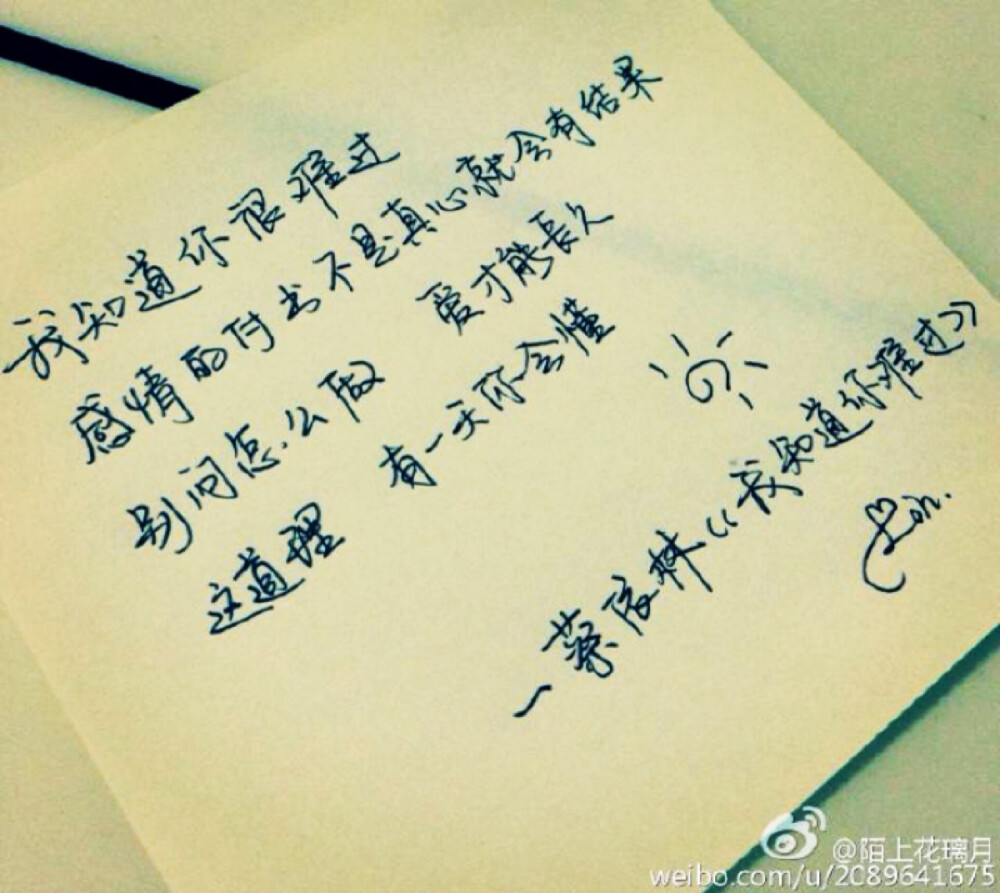 我知道你很难过
感情的付出不是真心就会有结果
别问怎么做 爱才能長久
这道理 有一天你会懂
—蔡依林《我知道你难过》
@陌上花璃月
weibo.com/u/2089641675